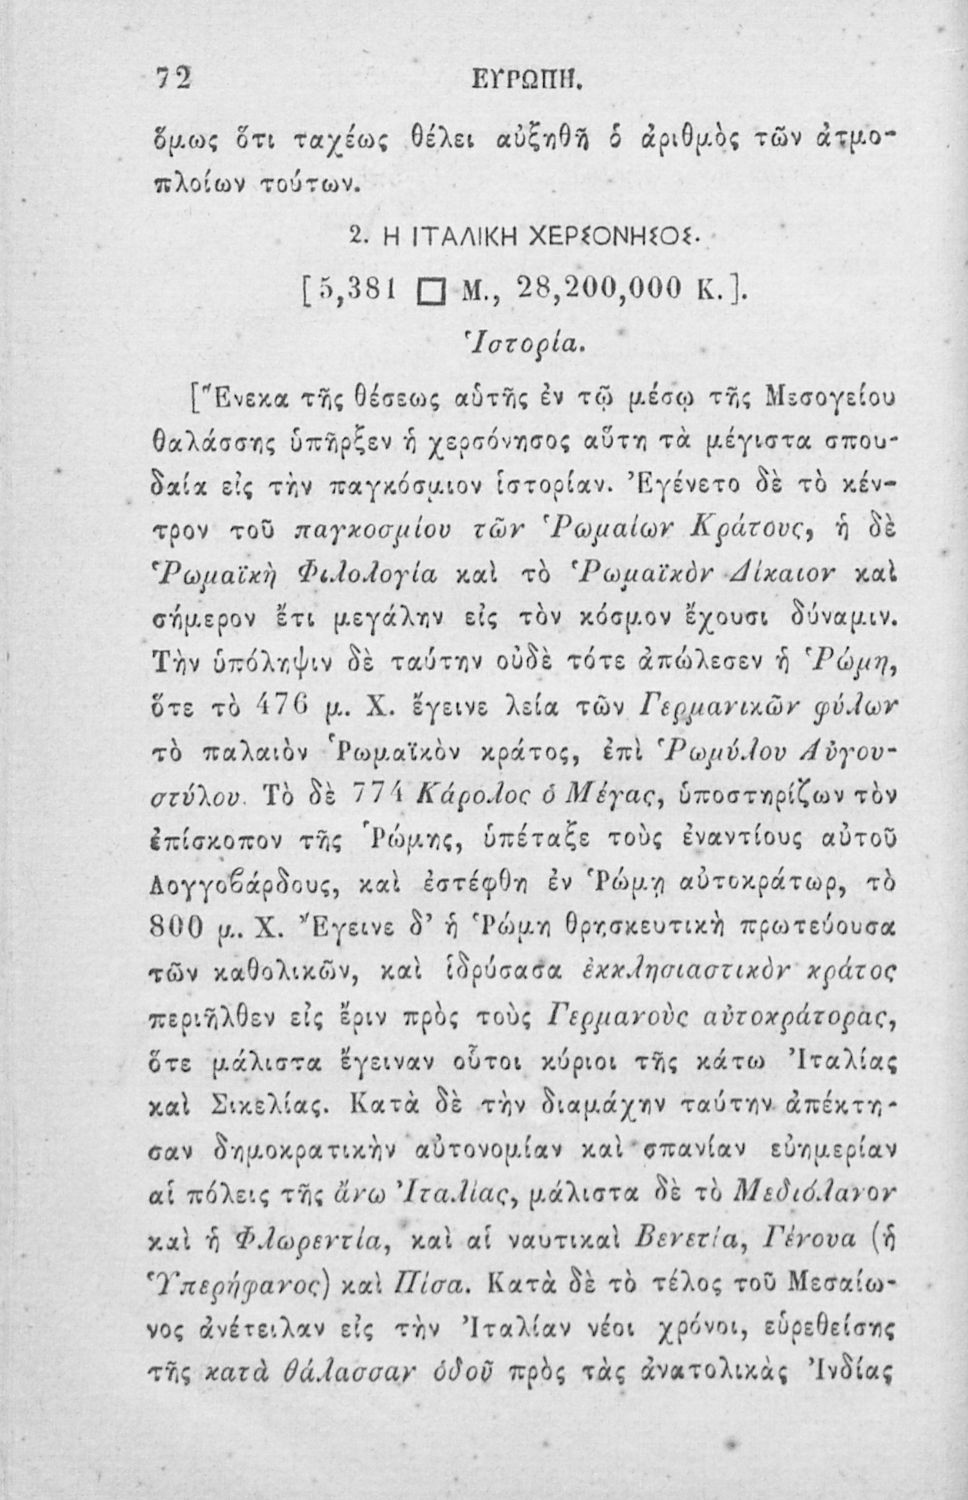 72 ΕΥΡΩΠΗ.
ὅμως ὅτι ταχέως θέλει αὐξηθῆ ὁ ἀριθμὸς τῶν ἀτμο-
πλοίων τούτων.
2. Η ΙΤΑΛΙΚΗ ΧΕΡΣΟΝΗΣΟΣ.
[5,381 □ Μ., 28,200,000 Κ.].
Ἱστορία.
[Ἕνεκα τῆς θέσεως αὑτῆς ἐν τῷ μέσῳ τῆς Μεσογείου
θαλάσσης ὑπῆρξεν ἡ χερσόνησος αὕτη τὰ μέγιστα σπου-
δαία εἰς τὴν παγκόσμιον ἱστορίαν. Ἐγένετο δὲ τὸ κέν-
τρον τοῦ παγκοσμίου τῶν Ῥωμαίων Κράτους, ἡ δὲ
Ῥωμαϊκὴ Φιλολογία καὶ τὸ Ῥωμαϊκὸν Δίκαιον καὶ
σήμερον ἔτι μεγάλην εἰς τὸν κόσμον ἔχουσι δύναμιν.
Τὴν ὑπόληψιν δὲ ταύτην οὐδὲ τότε ἀπώλεσεν ἡ Ῥώμη,
ὅτε τὸ 476 μ. Χ. ἔγεινε λεία τῶν Γερμανικῶν φύλων
τὸ παλαιὸν Ῥωμαϊκὸν κράτος, ἐπὶ Ῥωμύλου Αὐγου-
στύλου. Τὸ δὲ 774 Κάρολος ὁ Μέγας, ὑποστηρίζων τὸν
ἐπίσκοπον τῆς Ῥώμης, ὑπέταξε τοὺς ἐναντίους αὐτοῦ
Λογγοβάρδους, καὶ ἐστέφθη ἐν Ῥώμῃ αὐτοκράτωρ, τὸ
800 μ. Χ. Ἔγεινε δ' ἡ Ῥώμη θρησκευτικὴ πρωτεύουσα
τῶν καθολικῶν, καὶ ἱδρύσασα ἐκκλησιαστικὸν κράτος
περιῆλθεν εἰς ἔριν πρὸς τοὺς Γερμανοὺς αὐτοκράτορας,
ὅτε μάλιστα ἔγειναν οὗτοι κύριοι τῆς κάτω Ἰταλίας
καὶ Σικελίας. Κατὰ δὲ τὴν διαμάχην ταύτην ἀπέκτη-
σαν δημοκρατικὴν αὐτονομίαν καὶ σπανίαν εὐημερίαν
αἱ πόλεις τῆς ἄνω Ἰταλίας, μάλιστα δὲ τὸ Μεδιόλανον
καὶ ἡ Φλωρεντία, καὶ αἱ ναυτικαὶ Βενετία, Γένουα (ἡ
Ὑπερήφανος) καὶ Πίσα. Κατὰ δὲ τὸ τέλος τοῦ Μεσαίω-
νος ἀνέτειλαν εἰς τὴν Ἰταλίαν νέοι χρόνοι, εὑρεθείσης
τῆς κατὰ θάλασσαν ὁδοῦ πρὸς τὰς ἀνατολικὰς Ἰνδίας